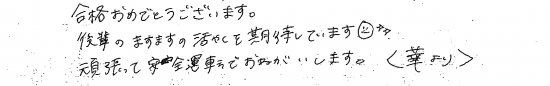 合格おめでとうございます。
後輩のますますの活やくを期待しています
頑張って安全運転でおねがいします。 <華より>